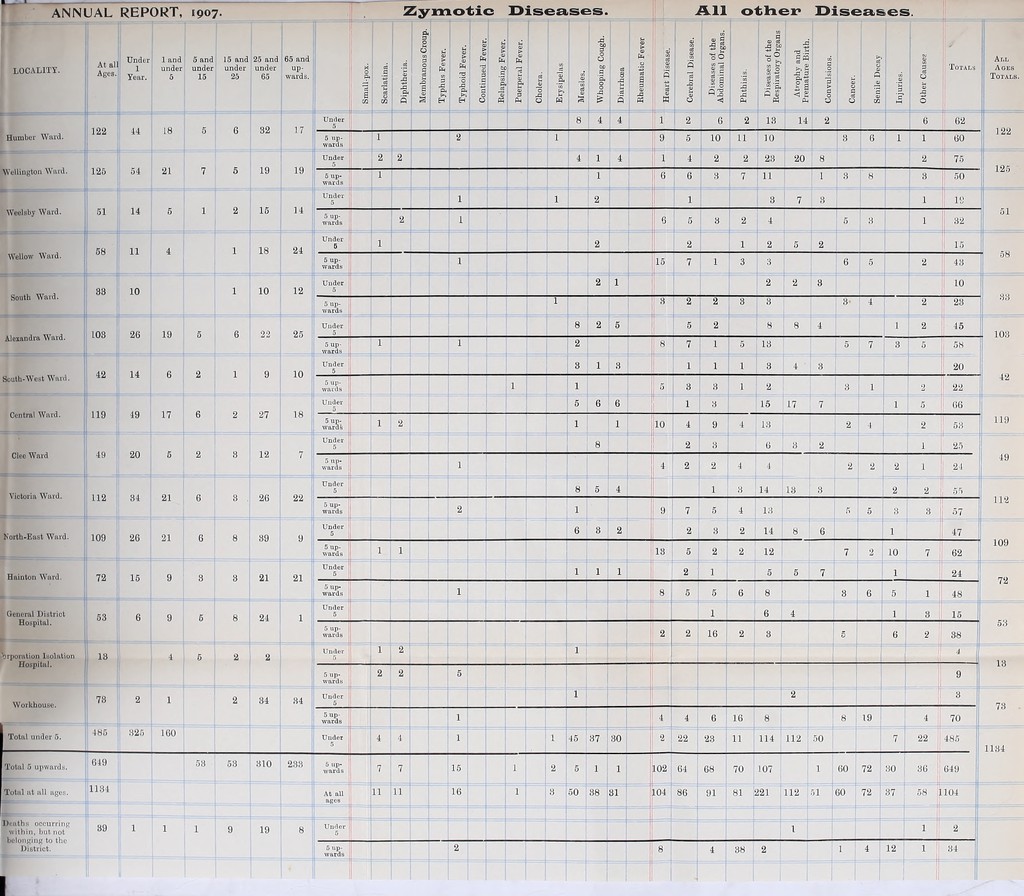 ANNUAL REPORT, 1907. Zymotic Diseases. All other Diseases.
LOCALITY. At all Ages. Under 1 Year. 1 and under 5 5 and under 15 15 and under 25 25 and under 65 65 and up-wards. Small-pox. Scarlatina. Diphtheria. Membranous Croup. Typhus Fever. Typhoid Fever. Continued Fever. Relapsing Fever. Puerperal Fever. Cholera. Erysipelas Measles. Whooping Cough. Diarrhœa Rheumatic Fever Heart Disease. Cerebral Disease. Diseases of the Abdominal Organs. Phthisis. Diseases of the Respiratory Organs Atrophy and Premature Birth. Convulsions. Cancer. Senile Decay Injuries. Other Causes TOTALS ALL AGES TOTALS.
Humber Ward. 122 44 18 5 6 32 17 Under 5 8 4 4 1 2 6 2 13 14 2 6 62 122
5 up-wards 1 2 1 9 5 10 11 10 3 6 1 1 60
Wellington Ward. 125 54 21 7 5 19 19 Under 5 2 2 4 1 4 1 4 2 2 23 20 8 2 75 125
5 up-wards 1 1 6 6 3 7 11 1 3 8 3 50
Weelsby Ward. 51 14 5 1 2 15 14 Under 5 1 1 2 1 3 7 3 1 19 51
5 up-wards 2 1 6 5 3 2 4 5 3 1 32
Wellow Ward. 58 11 4 1 18 24 Under 5 1 2 2 1 2 5 2 15 58
5 up-wards 1 15 7 1 3 3 6 5 2 43
South Ward. 33 10 1 10 12 Under 5 2 1 2 2 3 10 33
5 up-wards 1 3 2 2 3 3 3 4 2 23
Alexandra Ward. 103 26 19 5 6 22 25 Under 5 8 2 5 5 2 8 8 4 1 2 45 103
5 up-wards 1 1 2 8 7 1 5 13 5 7 3 5 58
South-West Ward. 42 14 6 2 1 9 10 Under 5 3 1 3 1 1 1 3 4 3 20 42
5 up-wards 1 1 5 3 3 1 2 3 1 2 22
Central Ward. 119 49 17 6 2 27 18 Under 5 5 6 6 1 3 15 17 7 1 5 66 119
5 up-wards 1 2 1 1 10 4 9 4 13 2 4 2 53
Clee Ward 49 20 5 2 3 12 7 Under 5 8 2 3 6 3 2 1 25 49
5 up-wards 1 4 2 2 4 4 2 2 2 1 24
Victoria Ward. 112 34 21 6 3 26 22 Under 5 8 5 4 1 3 14 13 3 2 2 55 112
5 up-wards 2 1 9 7 5 4 13 5 5 3 3 57
North-East Ward. 109 26 21 6 8 39 9 Under 5 6 3 2 2 3 2 14 8 6 1 47 109
5 up-wards 1 1 13 5 2 2 12 7 2 10 7 62
Hainton Ward. 72 15 9 3 3 21 21 Under 5 1 1 1 2 1 5 5 7 1 24 72
5 up-wards 1 8 5 5 6 8 3 6 5 1 48
General District Hospital. 53 6 9 5 8 24 1 Under 5 1 6 4 1 3 15 53
5 up-wards 2 2 16 2 3 5 6 2 38
orporation Isolation Hospital. 13 4 5 2 2 Under 5 1 2 1 4 13
5 up-wards 2 2 5 9
Workhouse. 73 2 1 2 34 34 Under 5 1 2 3 73
5 up-wards 1 4 4 6 16 8 8 19 4 70
Total under 5. 485 325 160 Under 5 4 4 1 1 45 37 30 2 22 23 11 114 112 50 7 22 485 1134
Total 5 upwards. 649 53 53 310 233 5 up-wards 7 7 15 1 2 5 1 1 102 64 68 70 107 1 60 72 30 36 649
Total at all ages. 1134 At all ages 11 11 16 1 3 50 38 31 104 86 91 81 221 112 51 60 72 37 58 1104
Deaths occurring within, but not belonging to the District. 39 1 1 1 9 19 8 Under 5 1 1 2
5 up-wards 2 8 4 38 2 1 4 12 1 34